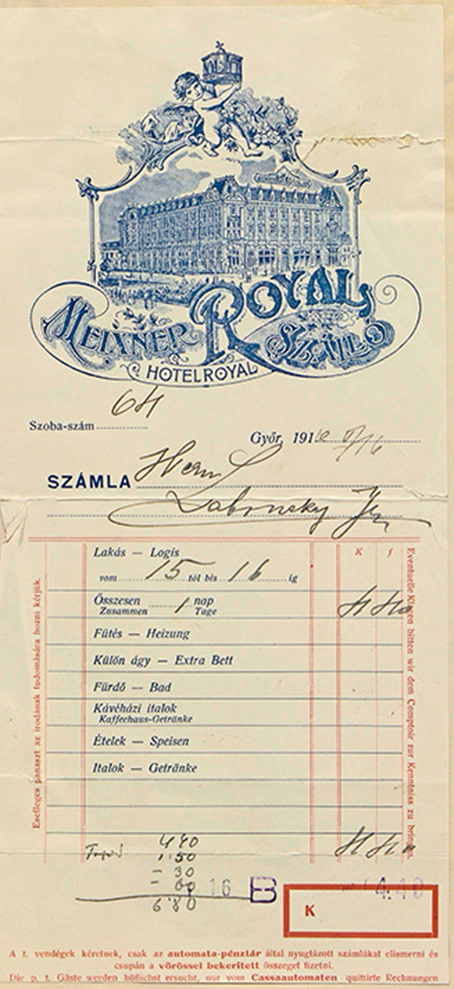 MEIXNER ROYAL SZÁLLÓ
HOTEL ROYAL
Szoba-szám 64
Győr, 191
SZÁMLA Herrn
Lakás — Logis
vom 15 tól bis 16 ig
Összesen 1 nap
Zusammen Tage
Fütés — Heizung
Külön ágy — Extra Bett
Fürdő — Bad
Kávéházi italok
Kaffeehaus-Getränke
Ételek — Speisen
Italok — Getränke
K f
4 40
Esetleges panaszt az irodának tudomására hozni kérjük.
Eventuelle Klagen bitten wir dem Comptoir zur Kenntniss zu bringen.
4 40
1 50
– 30
– 60
6 80
16 B 4.40
K
A t. vendégek kéretnek, csak az automata-pénztár által nyugtázott számlákat elismerni és
csupán a vörössel bekerített összeget fizetni.
Die p. t. Gäste werden höflichst ersucht, nur vom Cassaautomaten quittirte Rechnungen